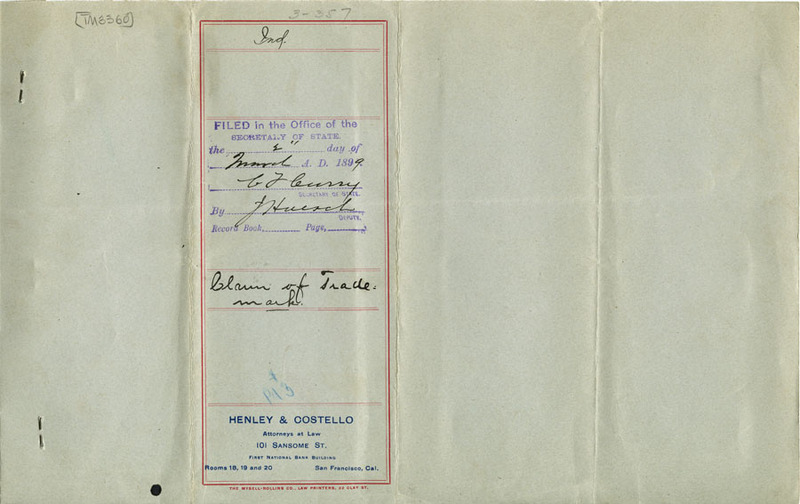 [TM8360]
3-357
Ind.
FILED in the Office of the
SECRETARY OF STATE
the 2" day of
March A. D. 1899.
C F Curry
SECRETARY OF STATE.
By J Hoesch
DEPUTY.
Record Book Page,
Claim of Trade-
mark.
HENLEY & COSTELLO
Attorneys at Law
101 SANSOME ST.
FIRST NATIONAL BANK BUILDING
Rooms 18, 19 and 20 San Francisco, Cal.
THE MYSELL-ROLLINS CO., LAW PRINTERS, 22 CLAY ST.